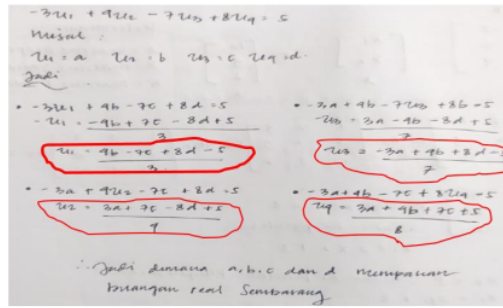 -3x₁ + 4x₂ - 7x₃ + 8x₄ = 5
misal :
x₁ = a x₂ = b x₃ = c x₄ = d
Jadi
• -3x₁ + 4b - 7c + 8d = 5
-x₁ = -4b + 7c - 8d + 5
3
x₁ = 4b - 7c + 8d - 5
3
• -3a + 4x₂ - 7c + 8d = 5
x₂ = 3a + 7c - 8d + 5
4
• -3a + 4b - 7x₃ + 8b = 5
-x₃ = 3a - 4b - 8d + 5
7
x₃ = -3a + 4b + 8d - 5
7
• -3a + 4b - 7c + 8x₄ = 5
x₄ = 3a + 4b + 7c + 5
8
∴ Jadi dimana a, b, c dan d merupakan
bilangan real sembarang